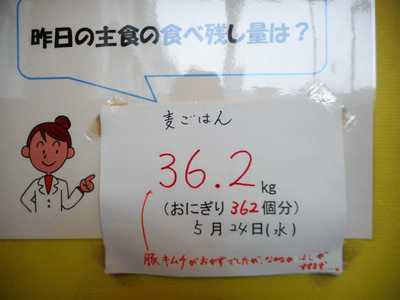 昨日の主食の食べ残し量は？
麦ごはん
36.2 kg
(おにぎり362個分)
5月24日(水)
豚キムチがおかずでしたが、